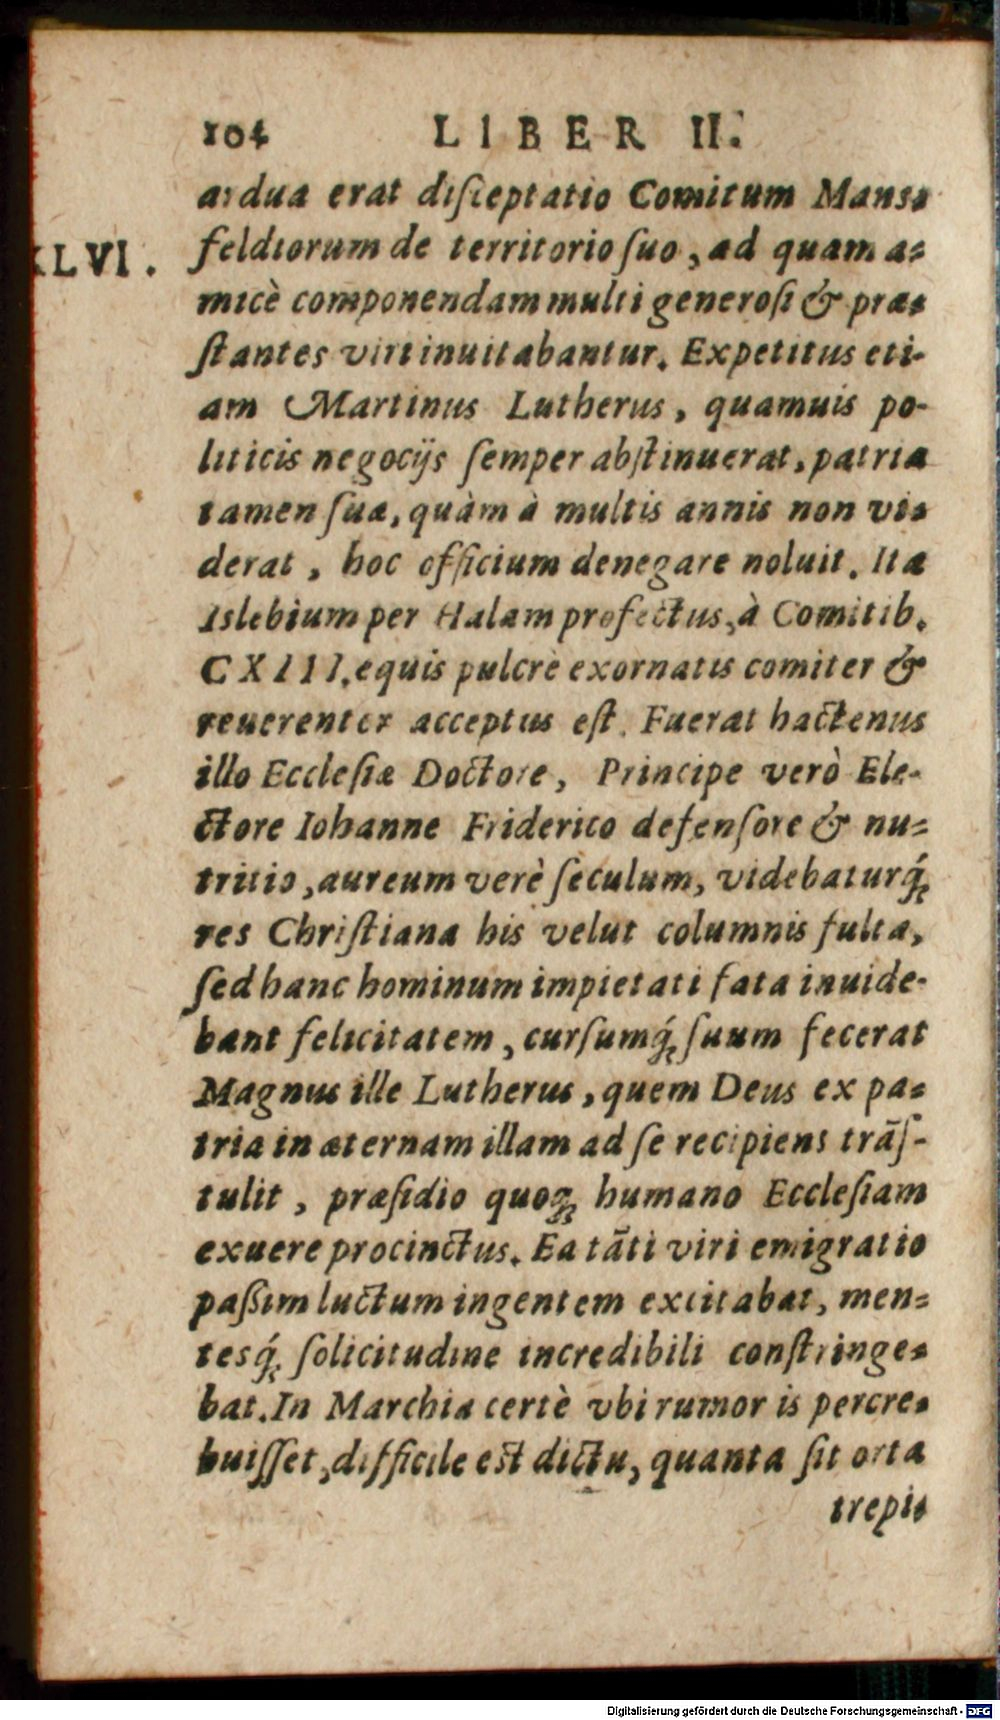 104 LIBER II.
ardua erat disceptatio Comitum Mans⸗
XLVI.
feldiorum de territorio ſuo, ad quam a⸗
micè componendam multi generoſi & præ⸗
ſtantes viri inuitabantur. Expetitus eti-
am Martinus Lutherus, quamuis po-
liticis negocijs ſemper abſtinuerat, patriæ
tamen ſuæ, quàm à multis annis non vi⸗
derat, hoc officium denegare noluit. Ita
Islebium per Halam profectus, à Comitib.
CXIII. equis pulcrè exornatis comiter &
reuerenter acceptus eſt. Fuerat hactenus
illo Eccleſiæ Doctore, Principe verò Ele-
ctore Iohanne Friderico defenſore & nu⸗
tritio, aureum verè ſeculum, videbaturq́;
res Chriſtiana his velut columnis fulta,
ſed hanc hominum impietati fata inuide-
bant felicitatem, curſumq́; ſuum fecerat
Magnus ille Lutherus, quem Deus ex pa⸗
tria in æternam illam ad ſe recipiens trãſ-
tulit, præſidio quoq; humano Eccleſiam
exuere procinctus. Ea tãti viri emigratio
paßim luctum ingentem excitabat, men⸗
tesq́; ſolicitudine incredibili conſtringe⸗
bat. In Marchia certè vbi rumor is percre⸗
buiſſet, difficile eſt dictu, quanta ſit orta
trepi⸗
Digitalisierung gefördert durch die Deutsche Forschungsgemeinschaft - DFG